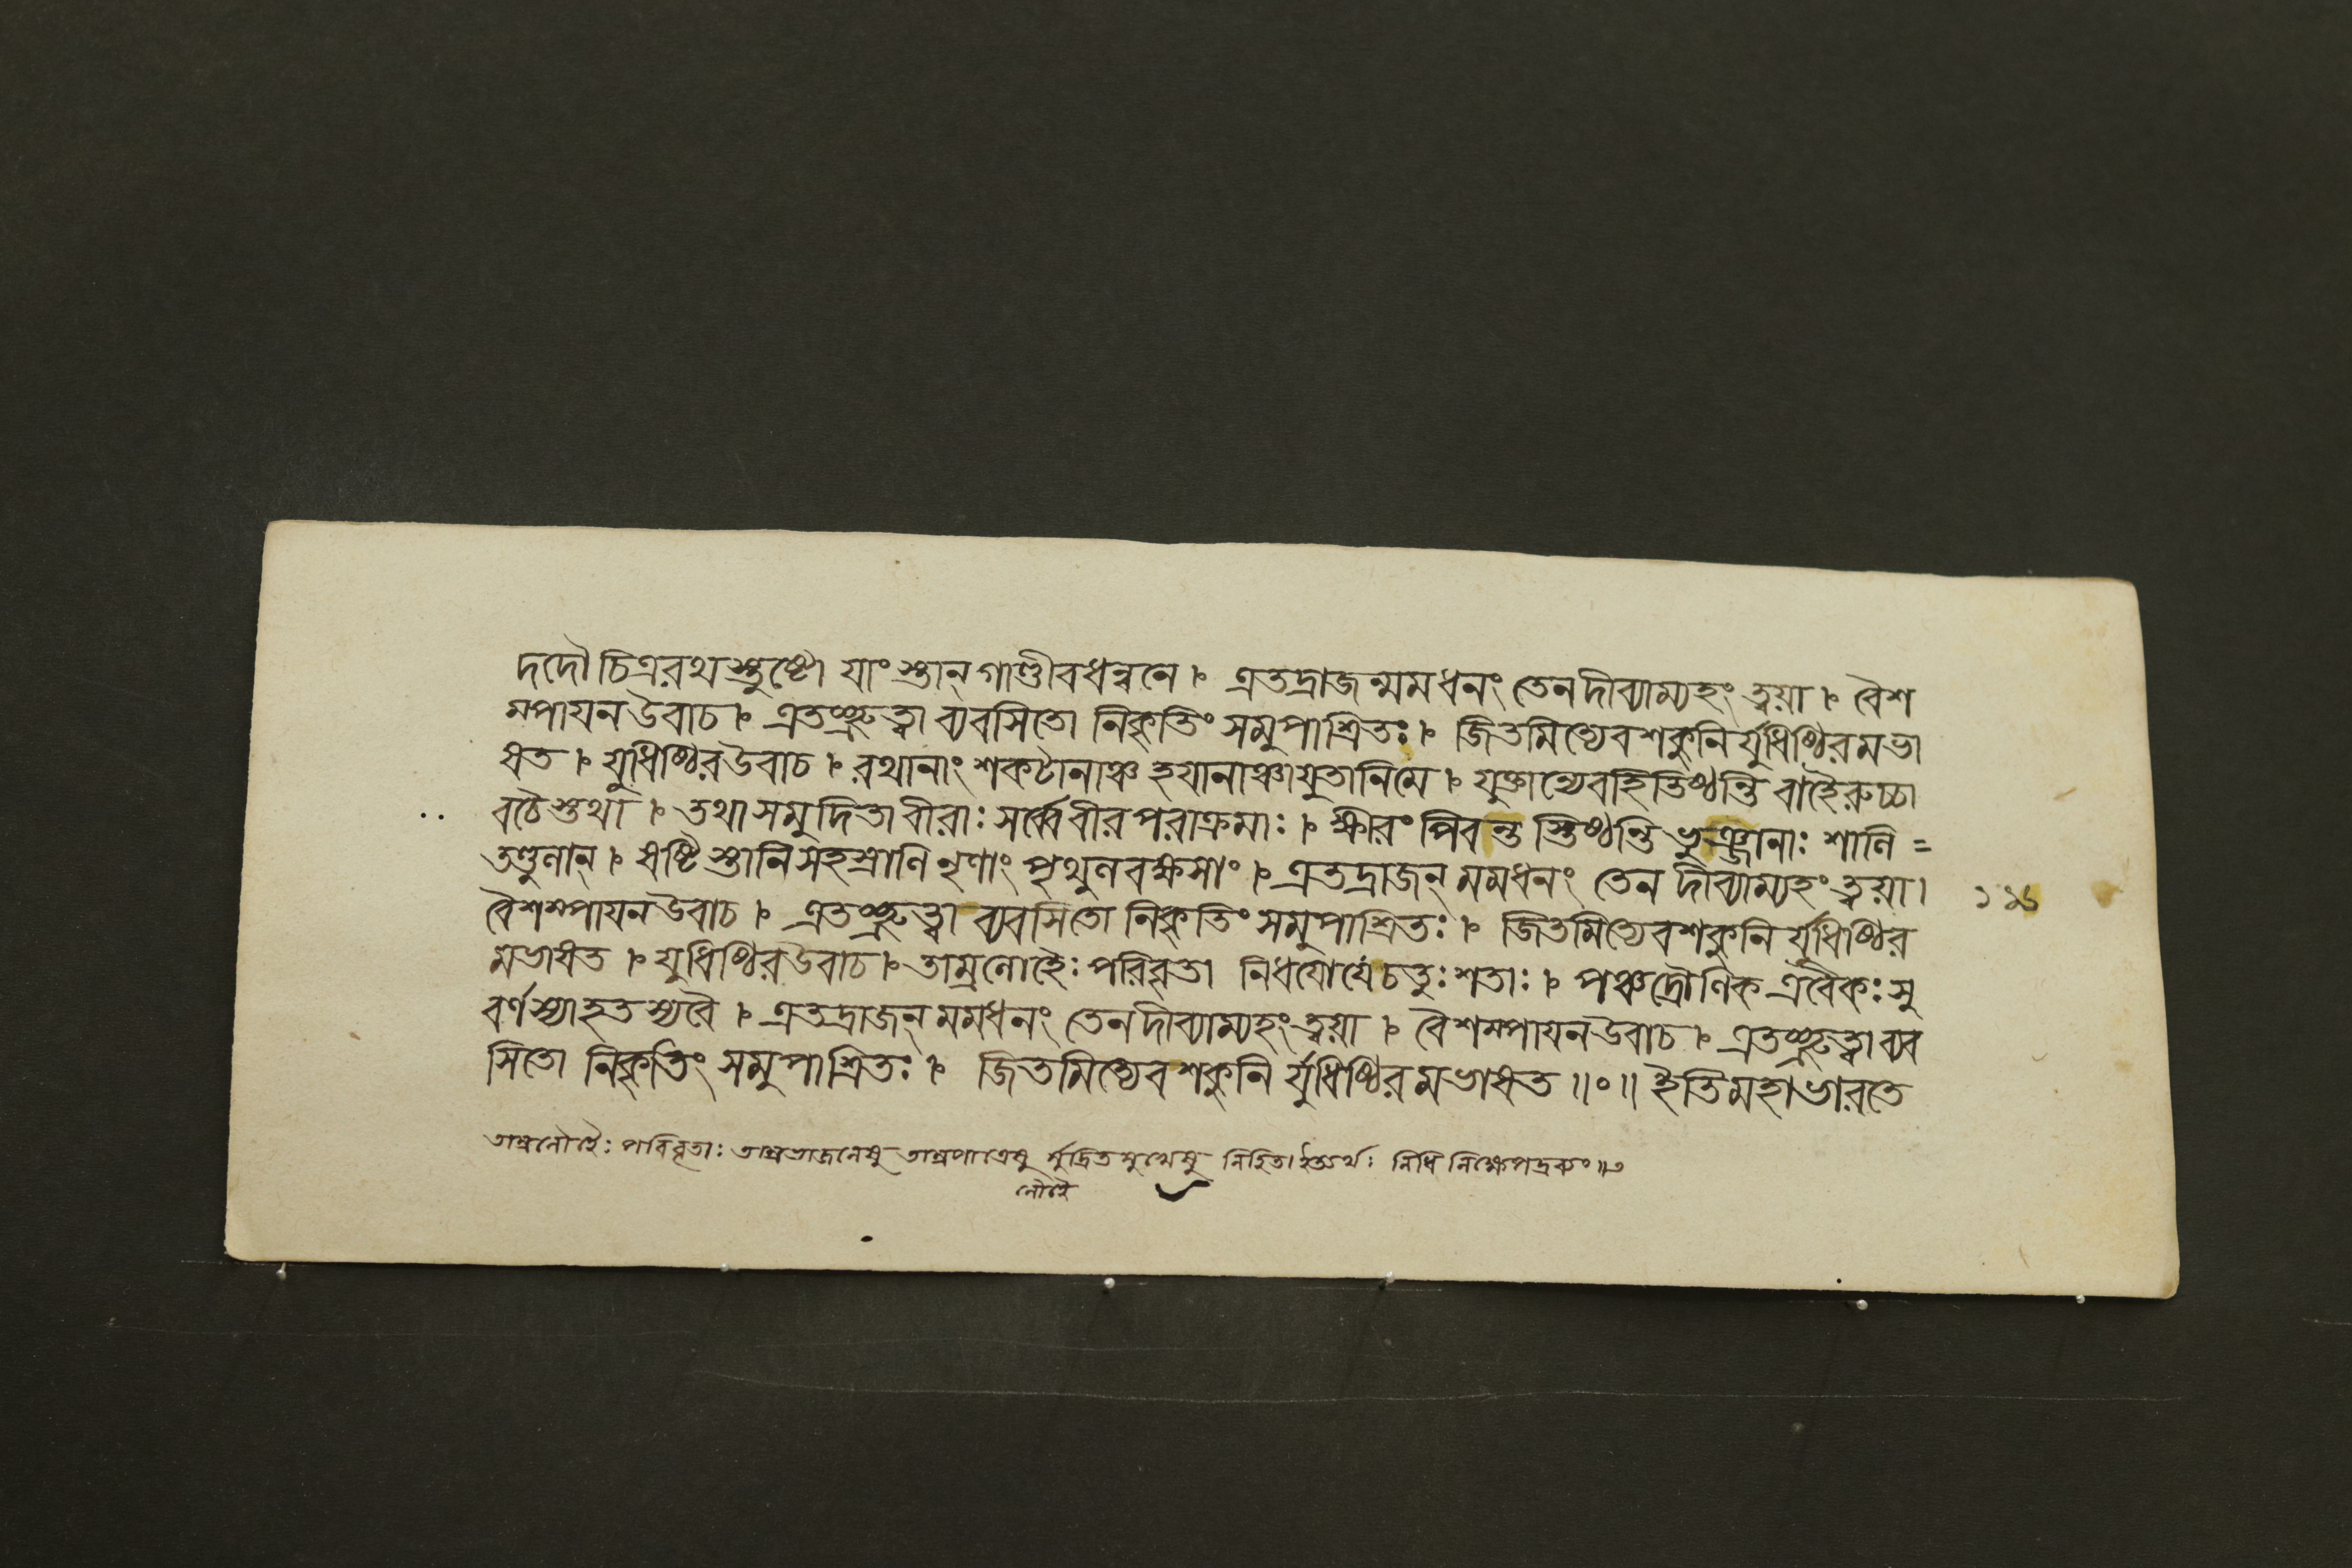 দদৌ চিত্ররথস্তুষ্টো যাংস্তান্ গাণ্ডীবধন্বনে । এতদ্রাজন্মমধনং তেনদীব্যাম্যহং ত্বয়া । বৈশ
ম্পাযনউবাচ । এতৎশ্রুত্বা ব্যবসিতো নিকৃতিং সমুপাশ্রিতঃ । জিতমিত্যেবশকুনির্যুধিষ্ঠিরমভা
ষত । যুধিষ্ঠিরউবাচ । রথানাং শকটানাঞ্চ হযানাঞ্চাযুতানিমে । যুক্তান্যেবহিতিষ্ঠন্তি বাহৈরুচ্চা
বচৈস্তথা । তথাসমুদিতাবীরাঃ সর্ব্বেবীরপরাক্রমাঃ । ক্ষীরং পিবন্তস্তিষ্ঠন্তি ভুঞ্জানাঃ শালি =
তণ্ডুলান্ । ষষ্টিস্তানিসহস্রাণি নৃণাং পৃথুলবক্ষসাং । এতদ্রাজন্ মমধনং তেন দীব্যাম্যহং ত্বয়া ।
বৈশম্পাযনউবাচ । এতৎশ্রুত্বা ব্যবসিতো নিকৃতিং সমুপাশ্রিতঃ । জিতমিত্যেবশকুনির্যুধিষ্ঠির
মভাষত । যুধিষ্ঠিরউবাচ । তাম্রলোহৈঃ পরিবৃতা নিধযোর্যেচতুঃশতাঃ । পঞ্চদ্রৌণিকএবৈকঃ সু
বর্ণস্যাহতস্যবৈ । এতদ্রাজন্ মমধনং তেনদীব্যাম্যহং ত্বয়া । বৈশম্পাযনউবাচ । এতৎশ্রুত্বাব্যব
সিতো নিকৃতিং সমুপাশ্রিতঃ । জিতমিত্যেবশকুনির্যুধিষ্ঠিরমভাষত ॥০॥ ইতিমহাভারতে
তাম্রলোহৈঃ পরিবৃতাঃ তাম্রভাজনেষু তাম্রপাত্রেষু মুদ্রিতমুখেষু নিহিতাইত্যর্থঃ নিধি নিক্ষেপদ্রব্যং ॥
লৌহৈ